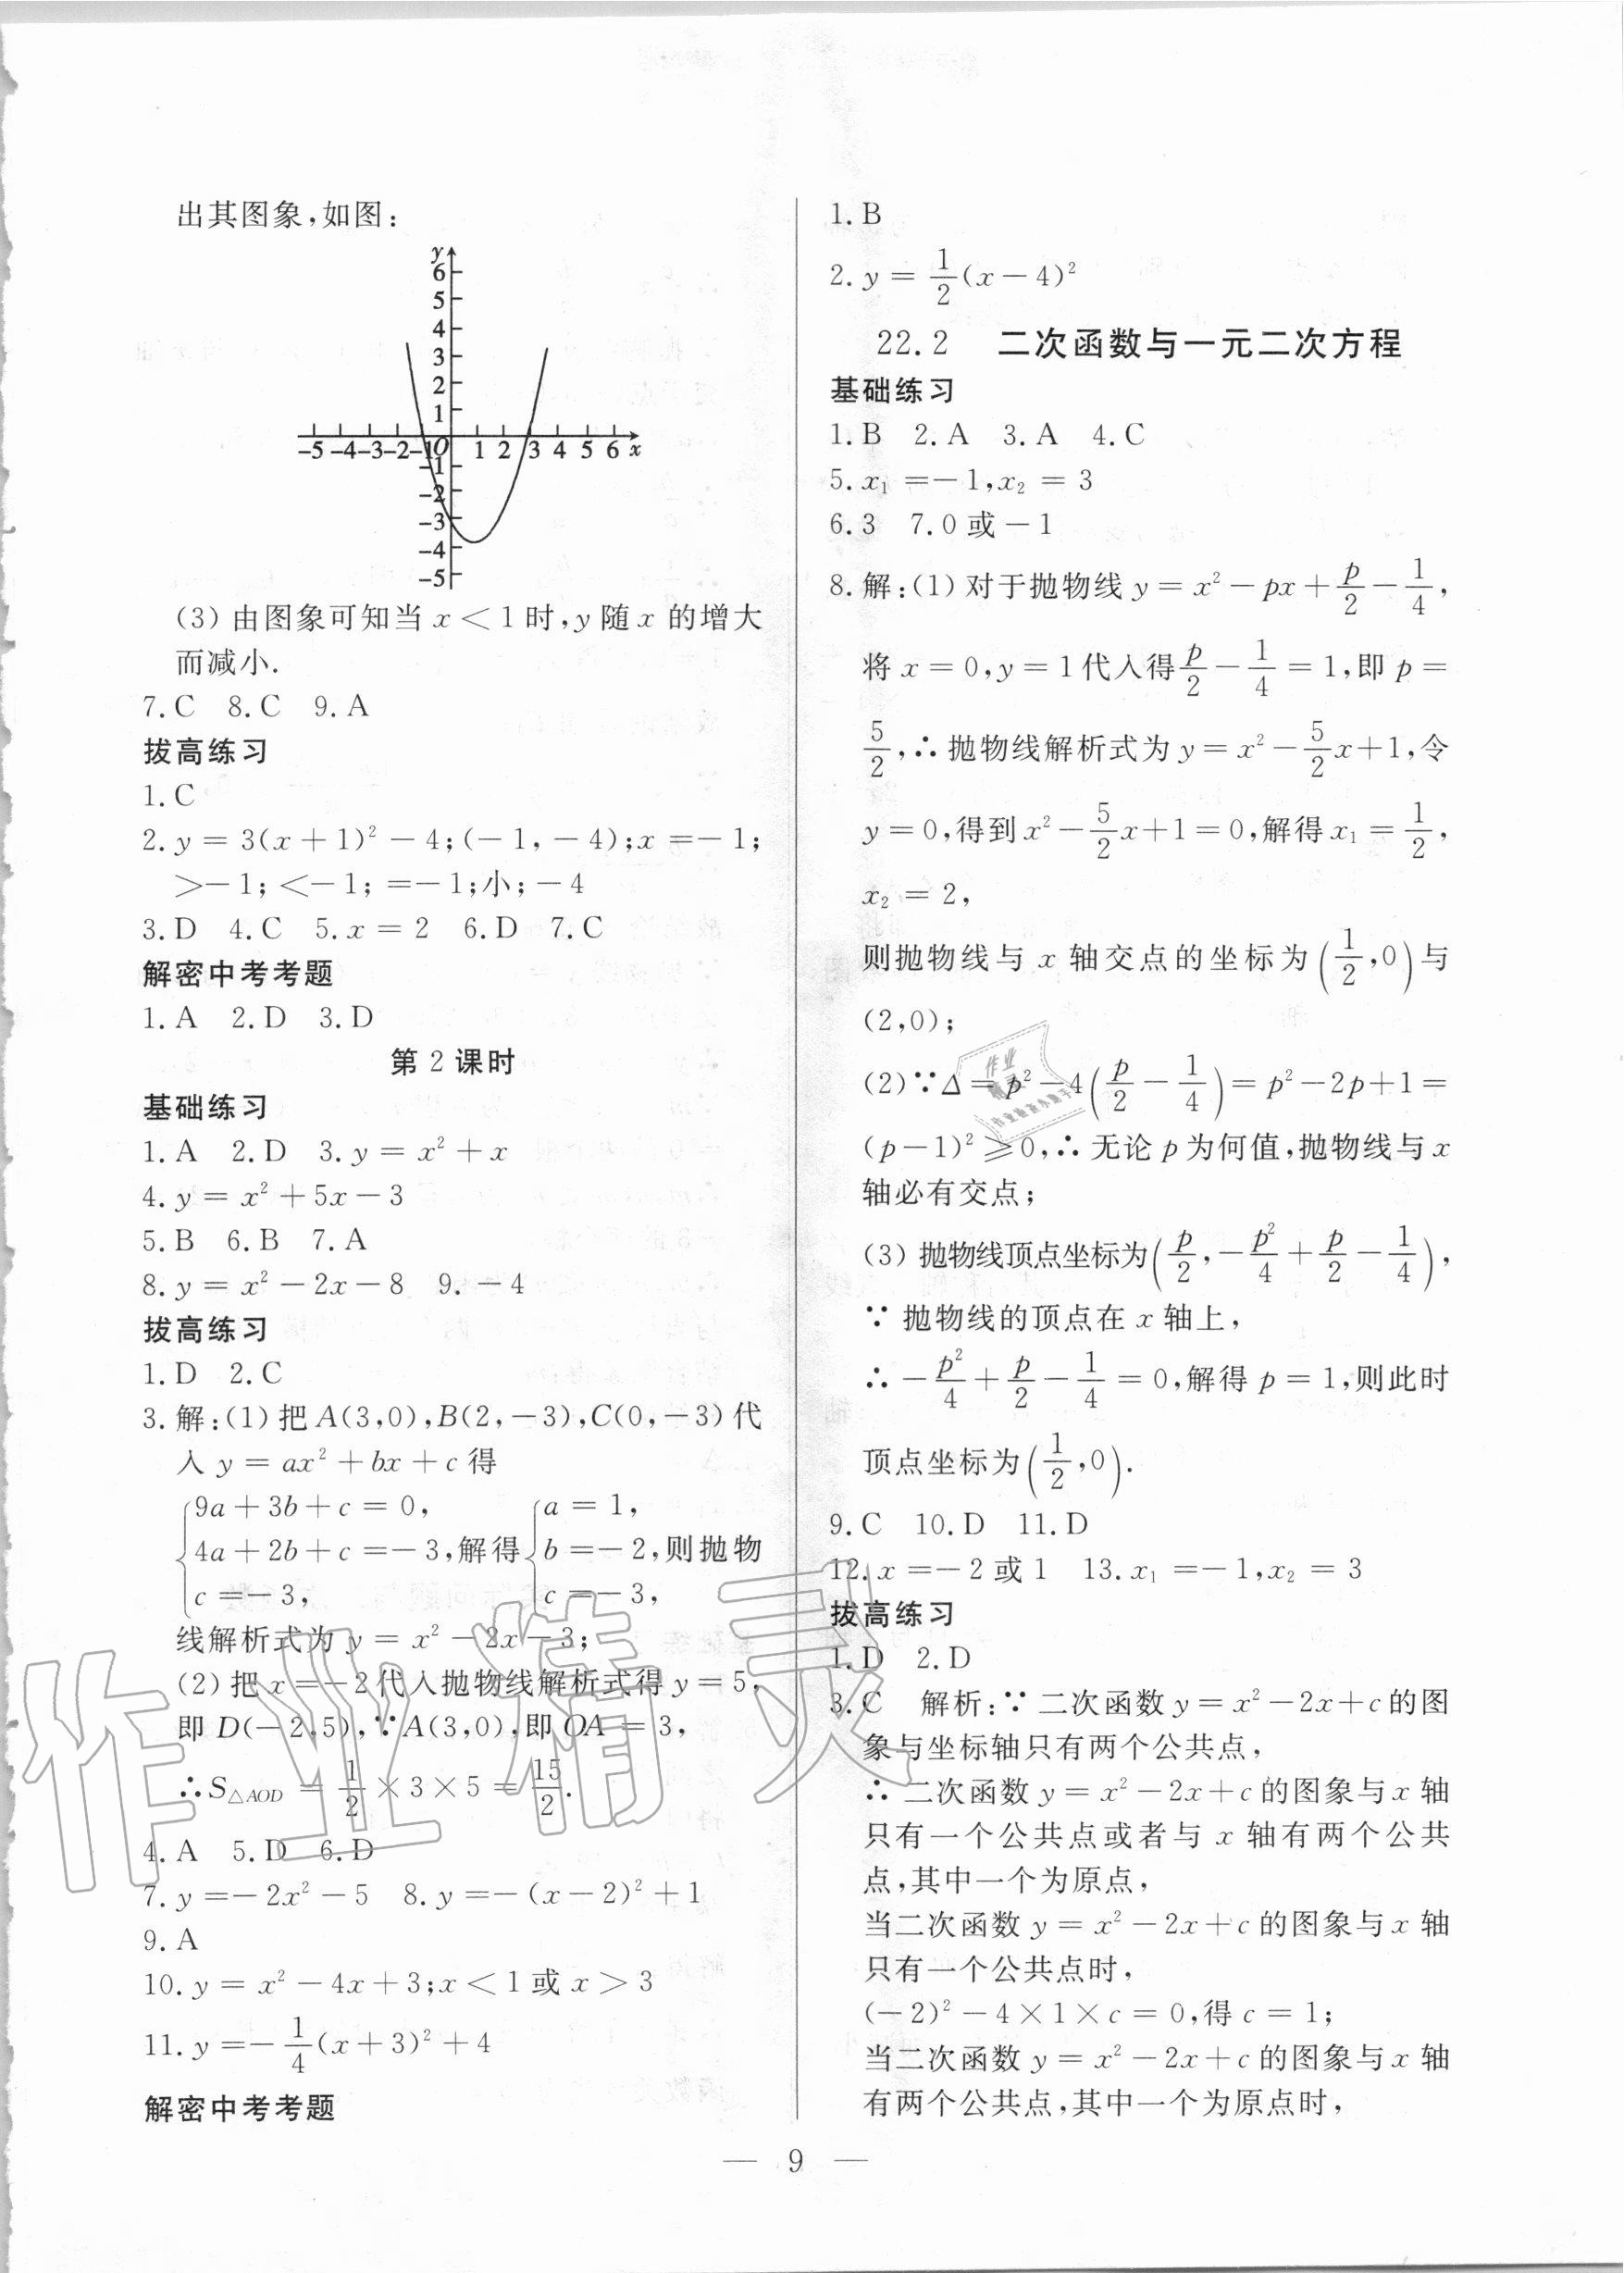 出其图象,如图:
y
6
5
4
3
2
1
-5 -4 -3 -2 -1 O 1 2 3 4 5 6 x
-1
-2
-3
-4
-5
(3) 由图象可知当 x < 1 时, y 随 x 的增大
而减小.
7. C 8. C 9. A
拔高练习
1. C
2. y = 3(x + 1)² - 4; (-1, -4); x = -1;
> -1; < -1; = -1; 小; -4
3. D 4. C 5. x = 2 6. D 7. C
解密中考考题
1. A 2. D 3. D
第 2 课时
基础练习
1. A 2. D 3. y = x² + x
4. y = x² + 5x - 3
5. B 6. B 7. A
8. y = x² - 2x - 8 9. -4
拔高练习
1. D 2. C
3. 解:(1) 把 A(3,0), B(2,-3), C(0,-3) 代
入 y = ax² + bx + c 得
{9a + 3b + c = 0, {a = 1,
4a + 2b + c = -3, 解得 b = -2, 则抛物
c = -3, c = -3,
线解析式为 y = x² - 2x - 3;
(2) 把 x = -2 代入抛物线解析式得 y = 5,
即 D(-2,5), ∵ A(3,0), 即 OA = 3,
∴ S△AOD = 1/2 × 3 × 5 = 15/2.
4. A 5. D 6. D
7. y = -2x² - 5 8. y = -(x - 2)² + 1
9. A
10. y = x² - 4x + 3; x < 1 或 x > 3
11. y = -1/4(x + 3)² + 4
解密中考考题
1. B
2. y = 1/2(x - 4)²
22.2 二次函数与一元二次方程
基础练习
1. B 2. A 3. A 4. C
5. x₁ = -1, x₂ = 3
6. 3 7. 0 或 -1
8. 解:(1) 对于抛物线 y = x² - px + p/2 - 1/4,
将 x = 0, y = 1 代入得 p/2 - 1/4 = 1, 即 p =
5/2, ∴ 抛物线解析式为 y = x² - 5/2x + 1, 令
y = 0, 得到 x² - 5/2x + 1 = 0, 解得 x₁ = 1/2,
x₂ = 2,
则抛物线与 x 轴交点的坐标为 (1/2, 0) 与
(2,0);
(2) ∵ Δ = p² - 4(p/2 - 1/4) = p² - 2p + 1 =
(p - 1)² ⩾ 0, ∴ 无论 p 为何值, 抛物线与 x
轴必有交点;
(3) 抛物线顶点坐标为 (p/2, -p²/4 + p/2 - 1/4),
∵ 抛物线的顶点在 x 轴上,
∴ -p²/4 + p/2 - 1/4 = 0, 解得 p = 1, 则此时
顶点坐标为 (1/2, 0).
9. C 10. D 11. D
12. x = -2 或 1 13. x₁ = -1, x₂ = 3
拔高练习
1. D 2. D
3. C 解析: ∵ 二次函数 y = x² - 2x + c 的图
象与坐标轴只有两个公共点,
∴ 二次函数 y = x² - 2x + c 的图象与 x 轴
只有一个公共点或者与 x 轴有两个公共
点, 其中一个为原点,
当二次函数 y = x² - 2x + c 的图象与 x 轴
只有一个公共点时,
(-2)² - 4 × 1 × c = 0, 得 c = 1;
当二次函数 y = x² - 2x + c 的图象与 x 轴
有两个公共点, 其中一个为原点时,
— 9 —
作业精灵